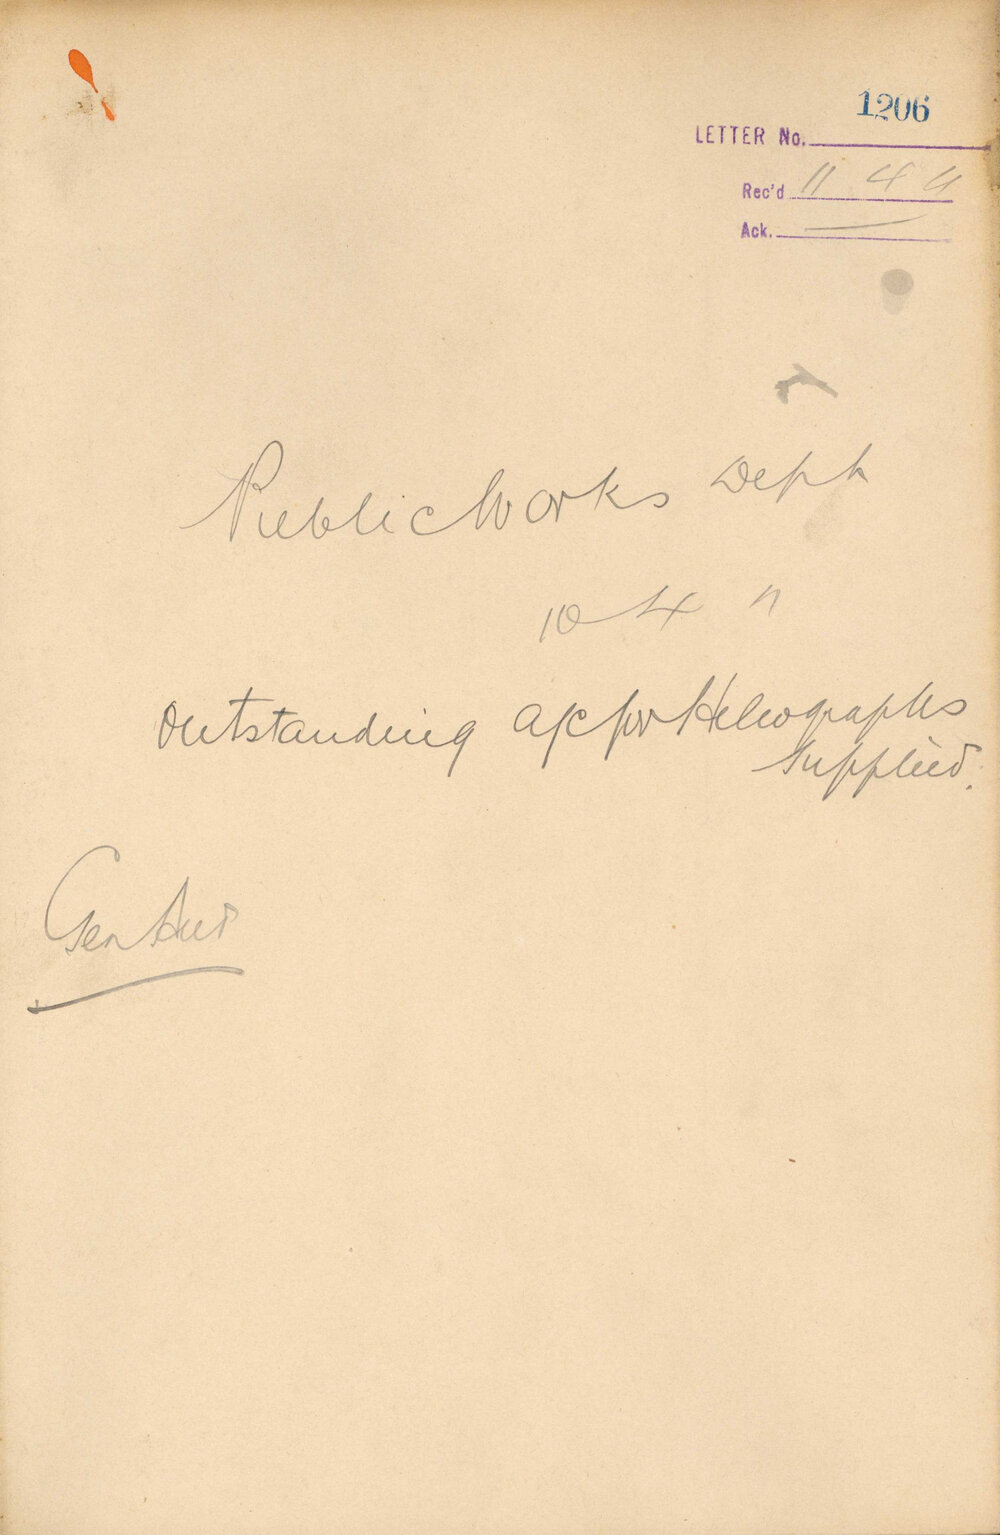 1206
LETTER No.
Rec'd 11 4 11
Ack. —
Public Works Dept
10 4 11
Outstanding a/c for Heleographs
supplied.
Gen